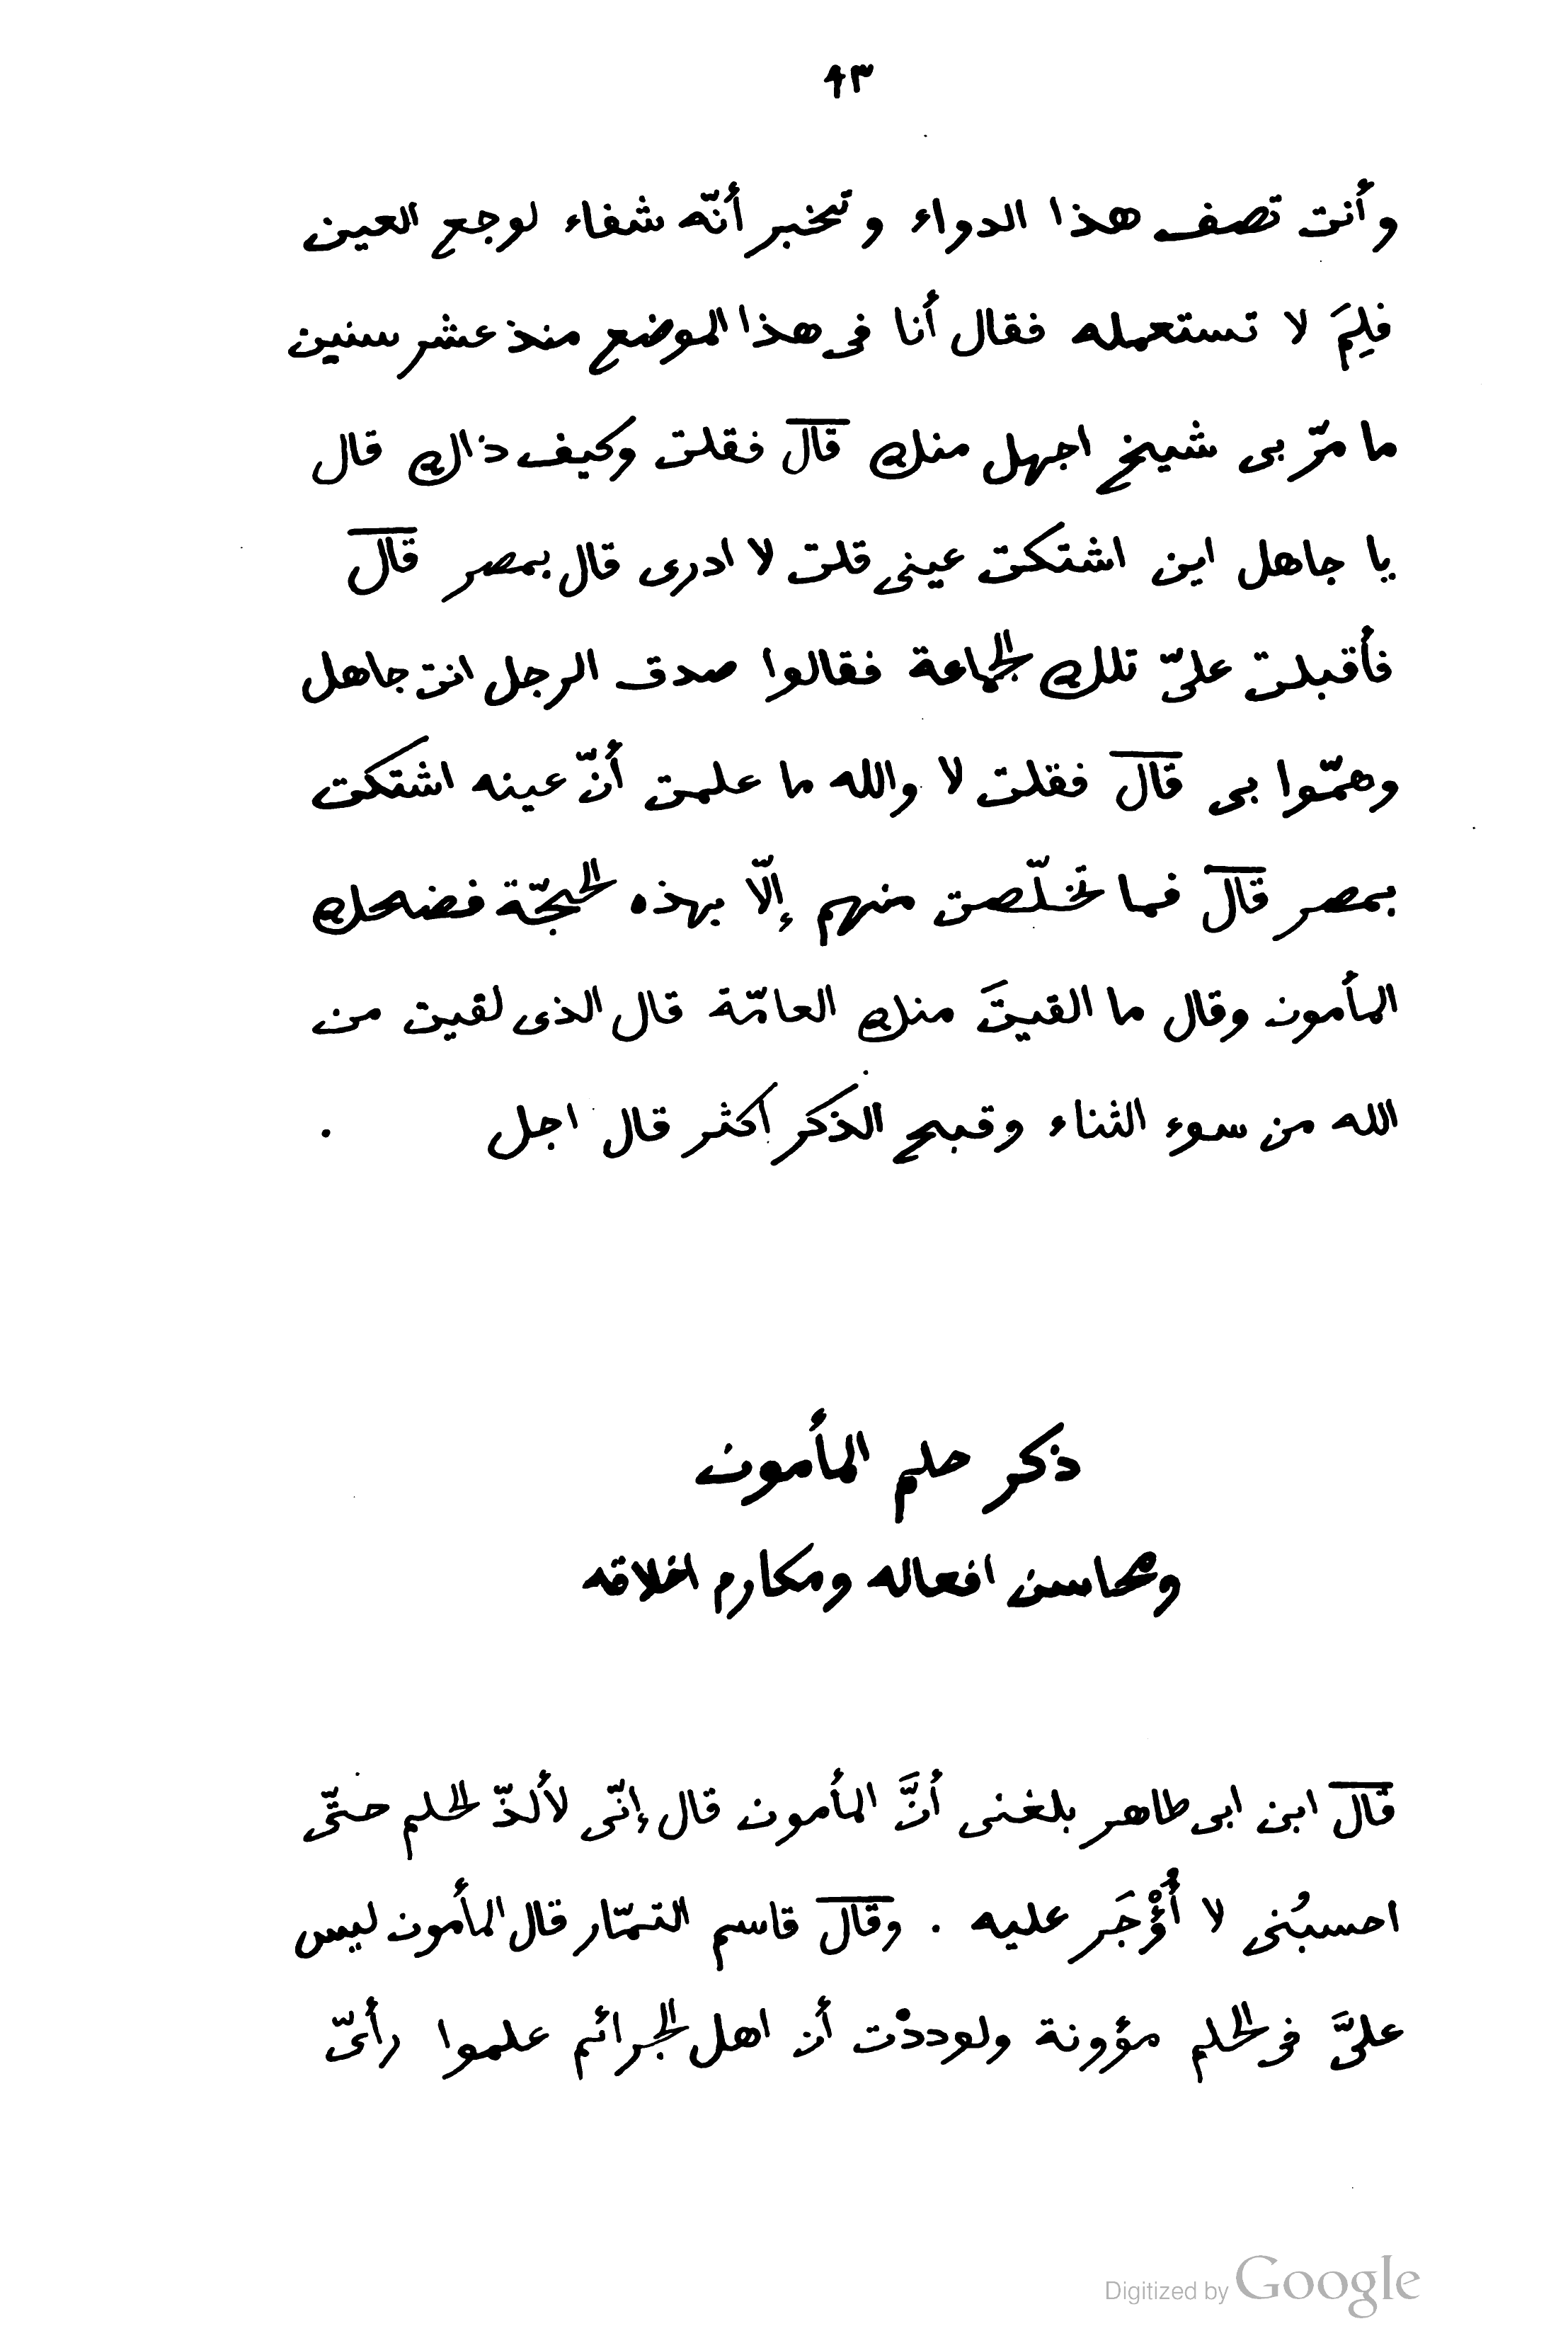 ٩٣
وأنت تصف هذا الدواء وتخبر أنّه شفاء لوجع العين
فلِمَ لا تستعمله فقال أنا فى هذا الموضع منذ عشر سنين
ما مرّ بى شيخ اجهل منك قال فقلت وكيف ذاك قال
يا جاهل اين اشتكت عينى قلت لا ادرى قال بمصر قال
فأقبلت علىّ تلك الجماعة فقالوا صدق الرجل انت جاهل
وهمّوا بى قال فقلت لا والله ما علمت أنّ عينه اشتكت
بمصر قال فما تخلّصت منهم إلّا بهذه الحجّة فضحك
المأمون وقال ما القيتَ منك العامّة قال الذى لقيت من
الله من سوء الثناء وقبح الذكر اكثر قال اجل .
ذكر حلم المأمون
ومحاسن افعاله ومكارم اخلاقه
قال ابن ابى طاهر بلغنى أنَّ المأمون قال إنّى لألذّ الحلم حتّى
احسبُنى لا أُوْجَر عليه . وقال قاسم التمّار قال المأمون ليس
علىَّ فى الحلم مؤونة ولوددْت أن اهل الجرائم علموا رأىّ
Digitized by Google